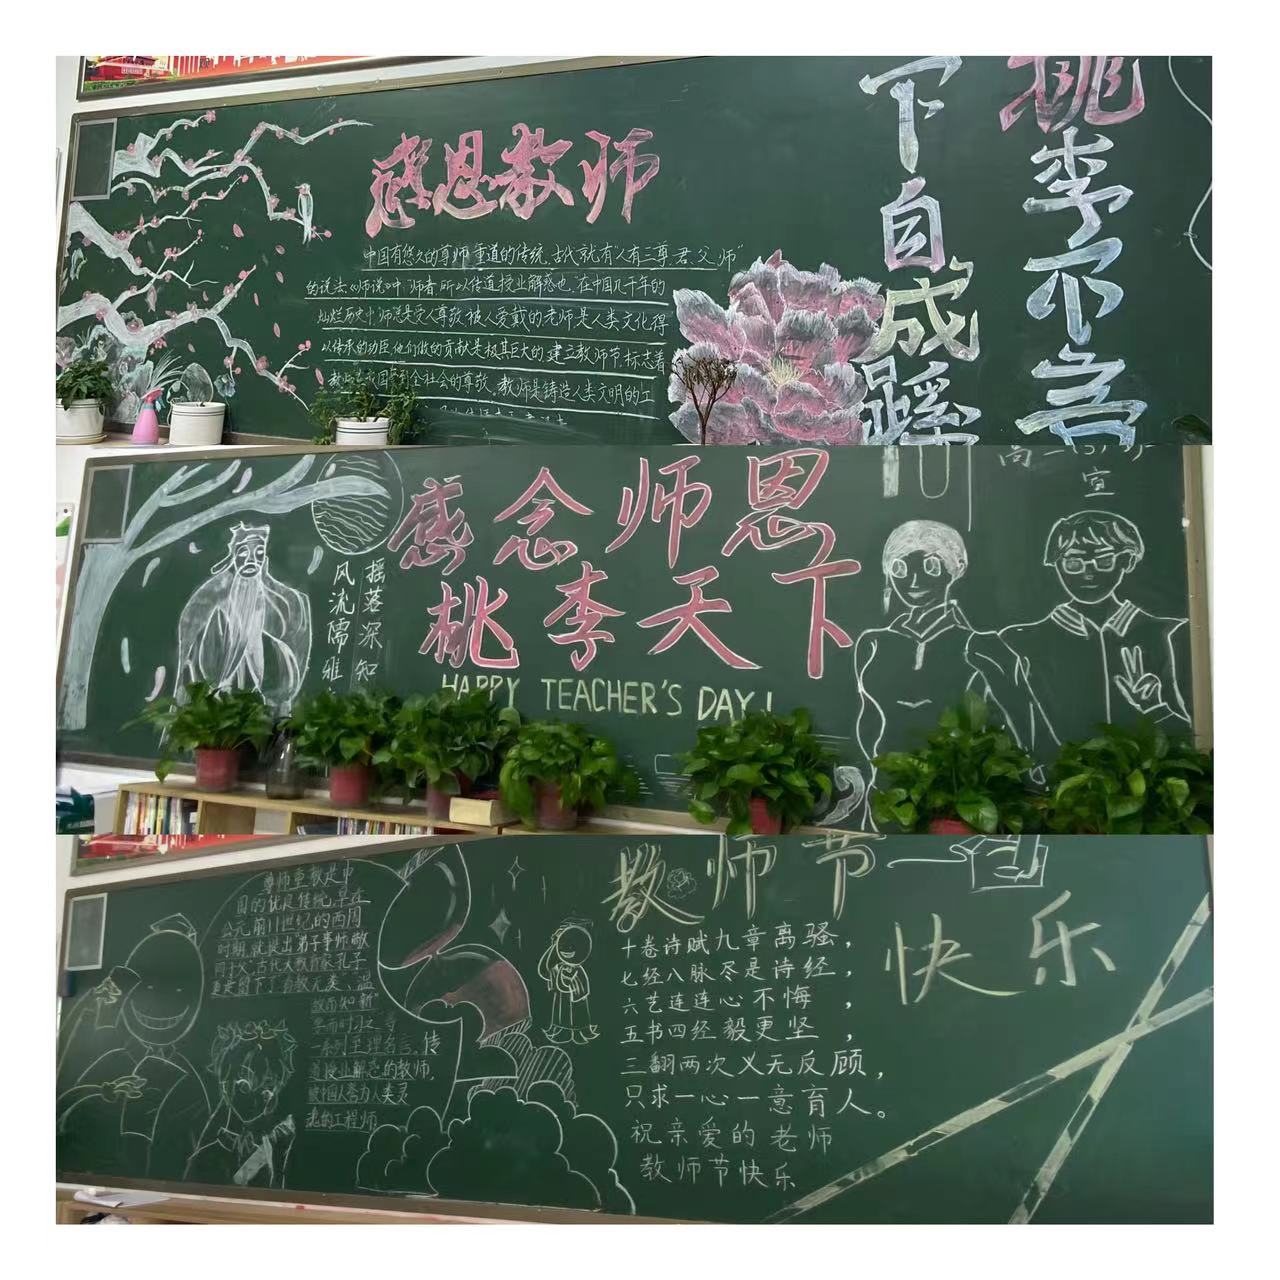 感恩教师
中国有悠久的尊师重道的传统,古代就有“人有三尊,君、父、师”
的说法《师说》中“师者,所以传道授业解惑也,在中国几千年的
灿烂历史中师总是受人尊敬被人爱戴的老师是人类文化得
以传承的功臣他们做的贡献是极其巨大的建立教师节,标志着
到全社会的尊敬。教师是铸造人类文明的工
桃李不言
下自成蹊
感念师恩
桃李天下
HAPPY TEACHER'S DAY!
摇落深知
风流儒雅
宣
尊师重教是中
国的优良传统,早在
公元前11世纪的西周
时期,就提出弟子事师敬
同于父,古代大教育家孔子
更是留下了有教无类、温
故而知新”
学而时习之等
一系列至理名言。传
道授业解惑的教师,
被中国人誉为人类灵
魂的工程师
教师节
快乐
十卷诗赋九章离骚,
七经八脉尽是诗经,
六艺连连心不悔,
五书四经毅更坚,
三翻两次义无反顾,
只求一心一意育人。
祝亲爱的老师
教师节快乐